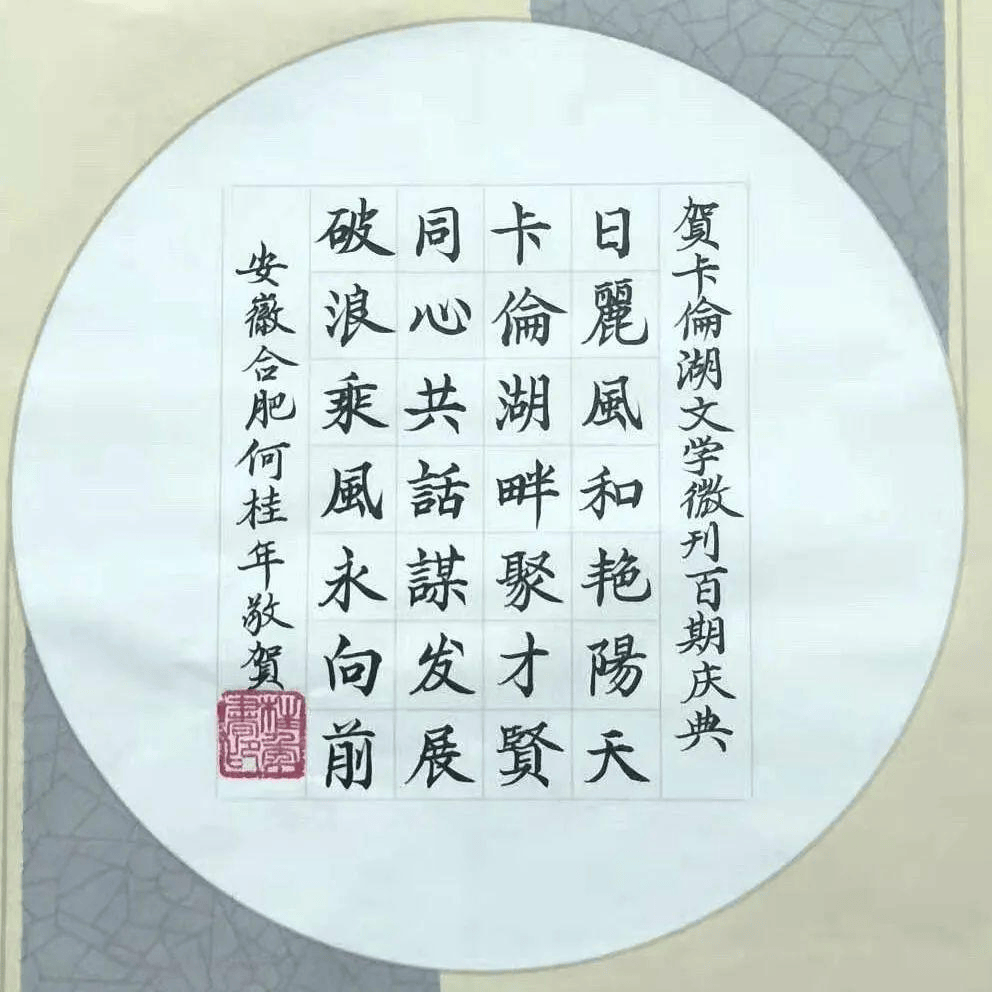 賀卡倫湖文学微刊百期庆典
日麗風和艳陽天
卡倫湖畔聚才賢
同心共話謀发展
破浪乘風永向前
安徽合肥何桂年敬賀